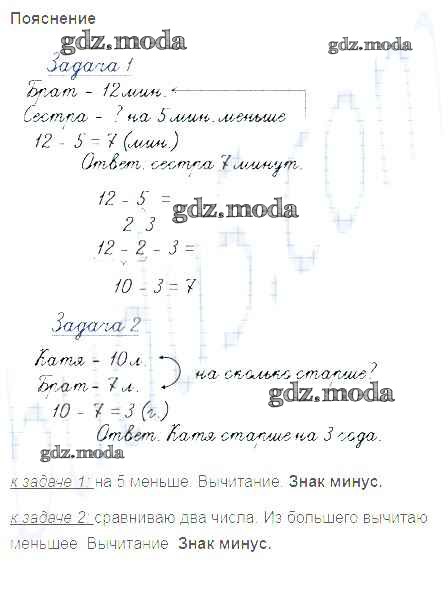 Пояснение
gdz.moda gdz.moda
Задача 1
Брат - 12 мин.
Сестра - ? на 5 мин. меньше
12 - 5 = 7 (мин.)
Ответ. сестра 7 минут.
12 - 5 =
2 3
gdz.moda
12 - 2 - 3 =
10 - 3 = 7
Задача 2
Катя - 10 л.
на сколько старше?
Брат - 7 л.
gdz.moda
10 - 7 = 3 (г.)
Ответ. Катя старше на 3 года.
gdz.moda
к задаче 1: на 5 меньше. Вычитание. Знак минус.
к задаче 2: сравниваю два числа. Из большего вычитаю
меньшее. Вычитание. Знак минус.